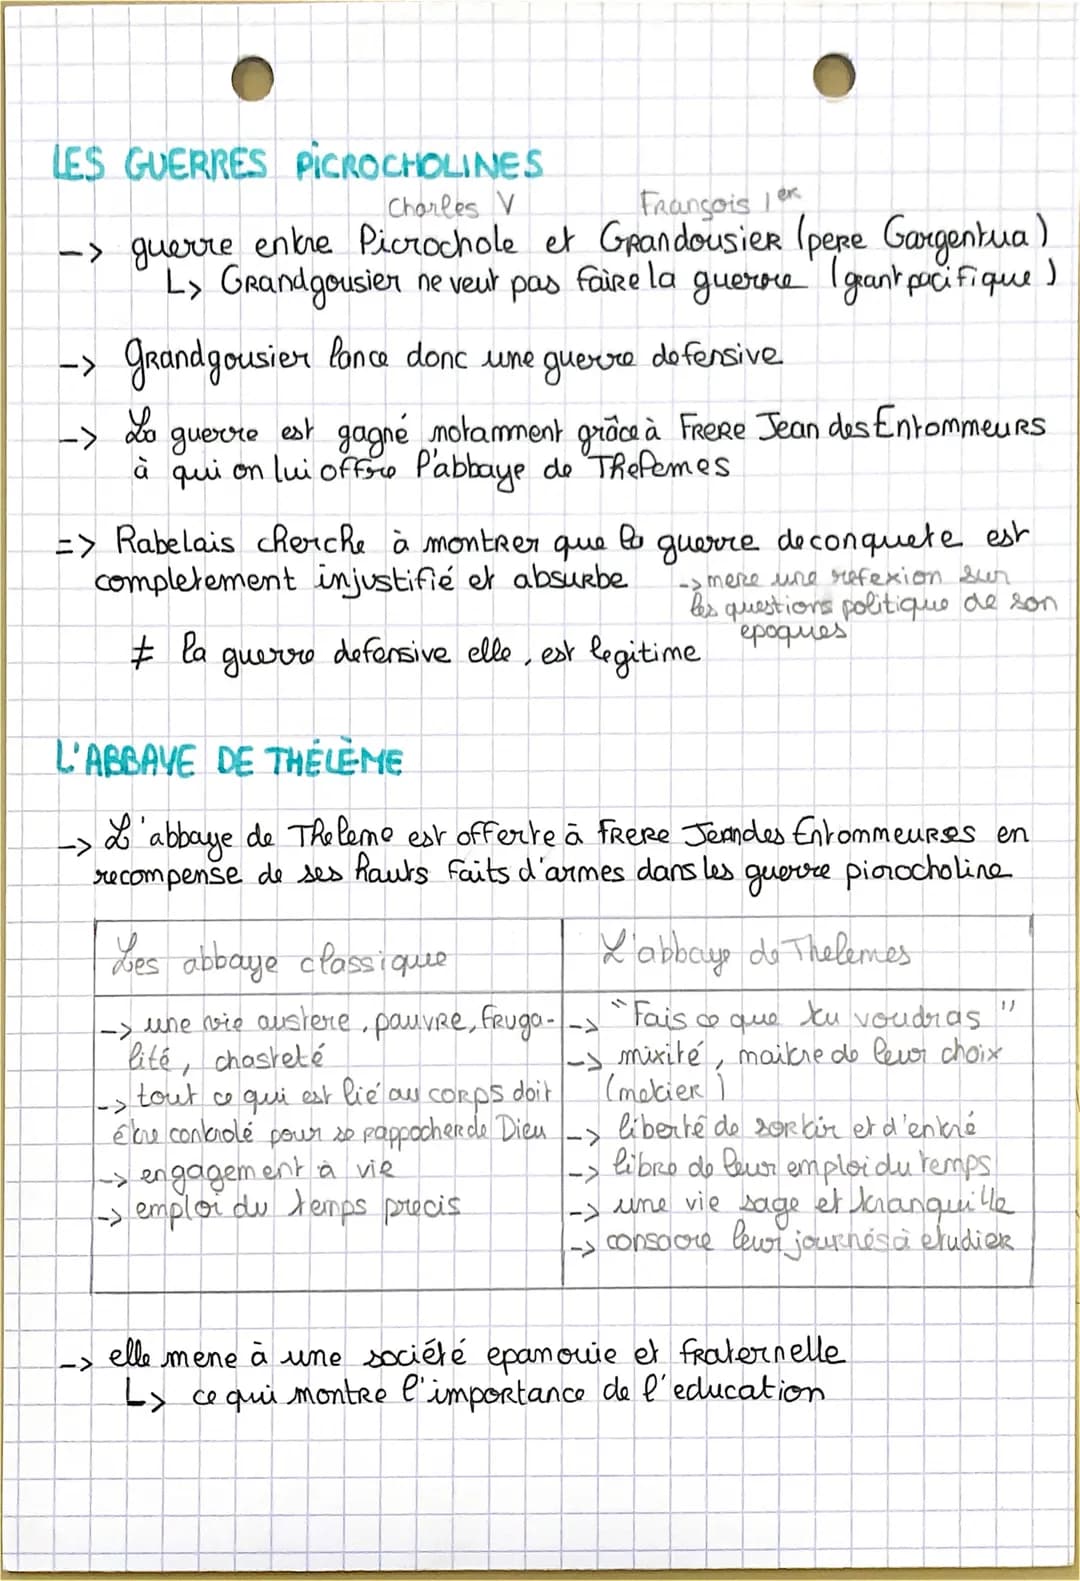 LES GUERRES PICROCHOLINES
Charles V François 1er
-> guerre entre Picrochole et Grandousier (pere Gargentua)
↳ Grandgousier ne veut pas faire la guerre (geant pacifique)
-> Grandgousier lance donc une guerre defensive
-> La guerre est gagné notamment grâce à Frere Jean des Entommeurs
à qui on lui offre l'abbaye de Thelemes
=> Rabelais cherche à montrer que la guerre de conquete est
completement injustifié et absurbe -> mene une refexion sur
les questions politique de son
epoques
≠ la guerre defensive elle, est legitime
L'ABBAYE DE THÉLÈME
-> L'abbaye de Theleme est offerte à Frere Jean des Entommeures en
recompense de ses hauts faits d'armes dans les guerre picrocholine
Les abbaye classique
-> une vie austere, pauvre, fruga-
lité, chasteté
-> tout ce qui est lié au corps doit
être controlé pour se rapprocher de Dieu
-> engagement à vie
-> emploi du temps precis
L'abbaye de Thelemes
-> "Fais ce que tu voudras"
-> mixité, maitre de leur choix
(metier)
-> liberté de sortir et d'entré
-> libre de leur emploi du temps
-> une vie sage et tranquille
-> consacre leur journés à etudier
-> elle mene à une société epanouie et fraternelle
↳ ce qui montre l'importance de l'education